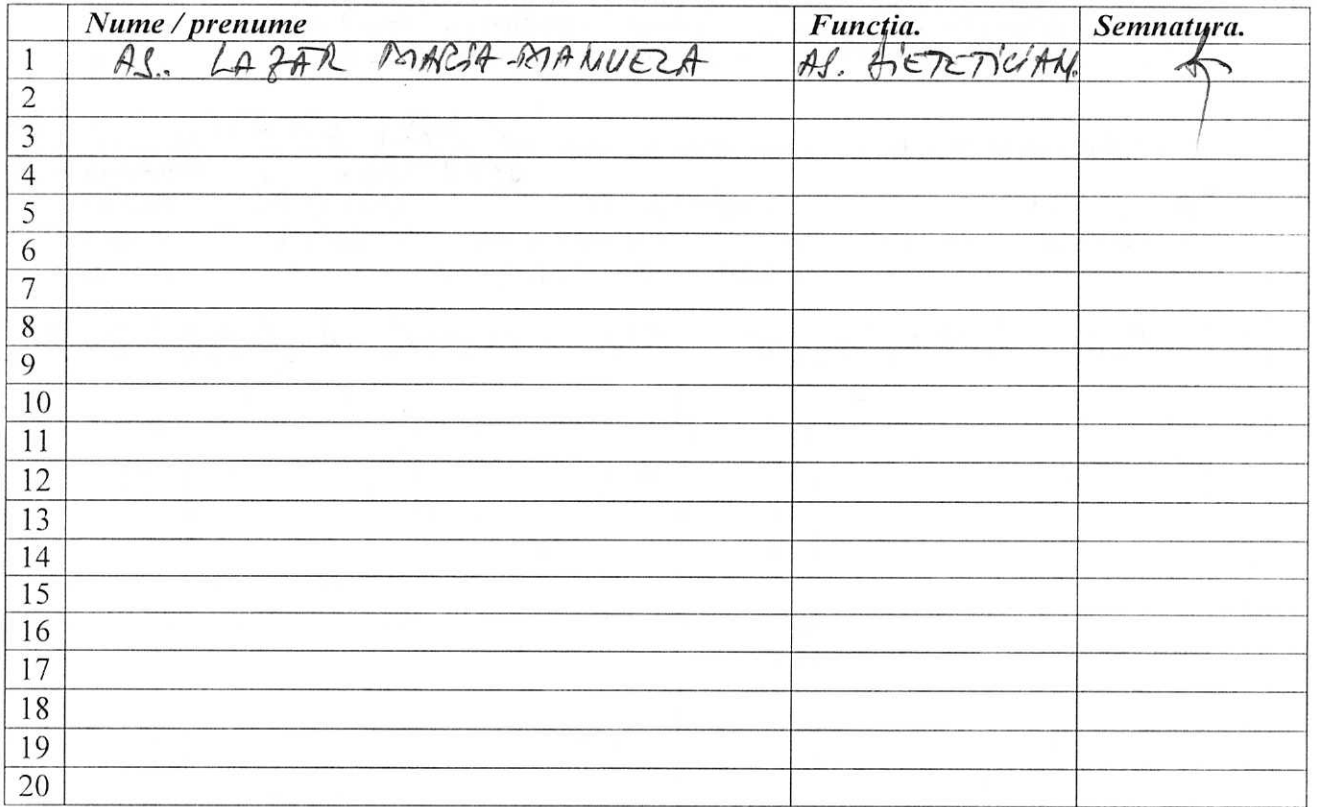 Nume / prenume Funcția. Semnatura.
1 AS. LAZĂR MARIA-MANUELA AS. DIETETICIAN.
2
3
4
5
6
7
8
9
10
11
12
13
14
15
16
17
18
19
20